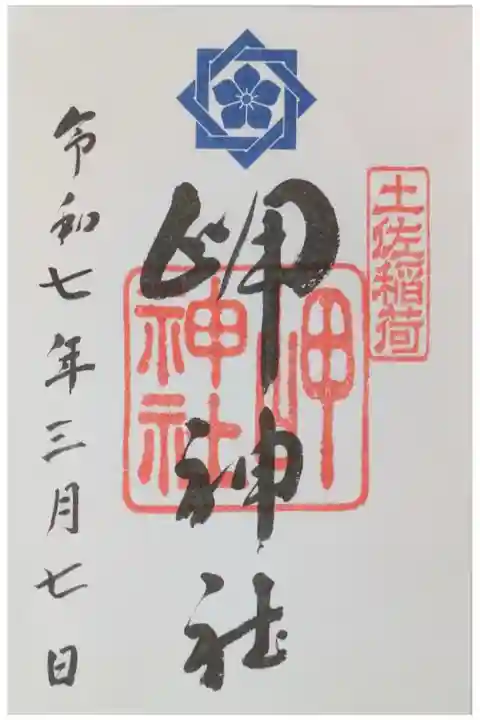 土佐稲荷
岬神社
岬神社
令和七年三月七日